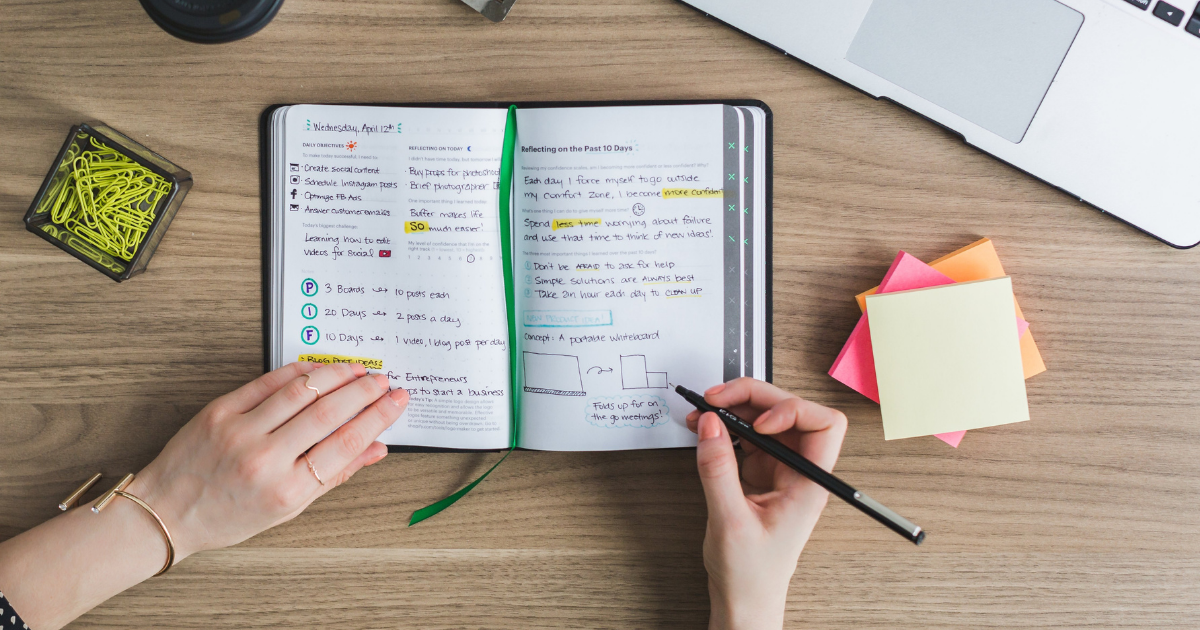 Wednesday, April 12th
DAILY OBJECTIVES
To make today successful, I need to
Create social content
Schedule Instagram posts
Optimize FB Ads
Answer customer emails
Today's biggest challenge:
Learning how to edit
videos for social
P 3 Boards → 10 posts each
I 20 Days → 2 posts a day
F 10 Days → 1 video, 1 blog post per day
BLOG POST IDEAS:
for Entrepreneurs
to start a business
REFLECTING ON TODAY
I didn't have time today, but tomorrow I will
Buy props for photoshoot
Brief photographer
Buffer makes life
SO much easier!
Reflecting on the Past 10 Days
Each day I force myself to go outside
my comfort zone, I become more confident
Spend less time worrying about failure
and use that time to think of new ideas!
1 Don't be AFRAID to ask for help
2 Simple solutions are ALWAYS best
3 Take an hour each day to CLEAN UP
NEW PRODUCT IDEA!
Concept: A portable whiteboard
Folds up for on
the go meetings!